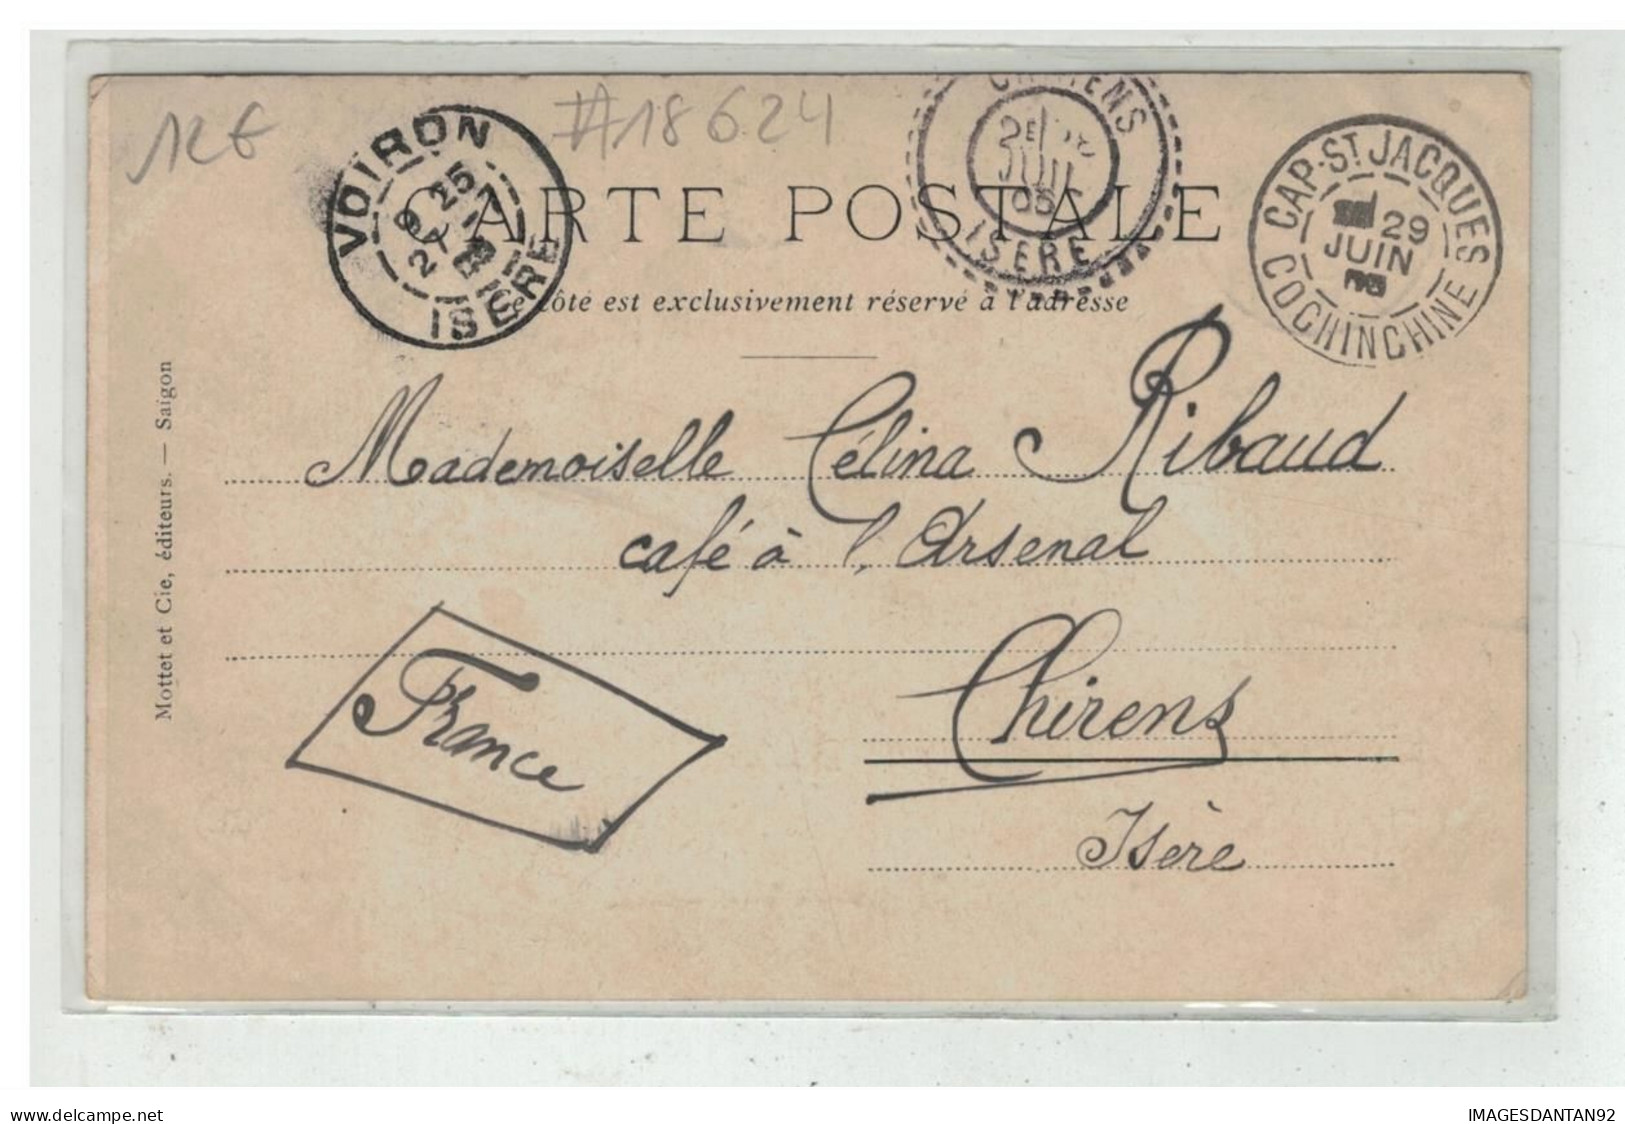 12€
#18624
VOIRON
ISÈRE
25
ISERE
CAP-ST JACQUES
29
JUIN
COCHINCHINE
CARTE POSTALE
Ce côté est exclusivement réservé à l'adresse
Mottet et Cie, éditeurs. — Saigon
Mademoiselle Célina Ribaud
café à l'Arsenal
France
Chirens
Isère
www.delcampe.net
IMAGESDANTAN92